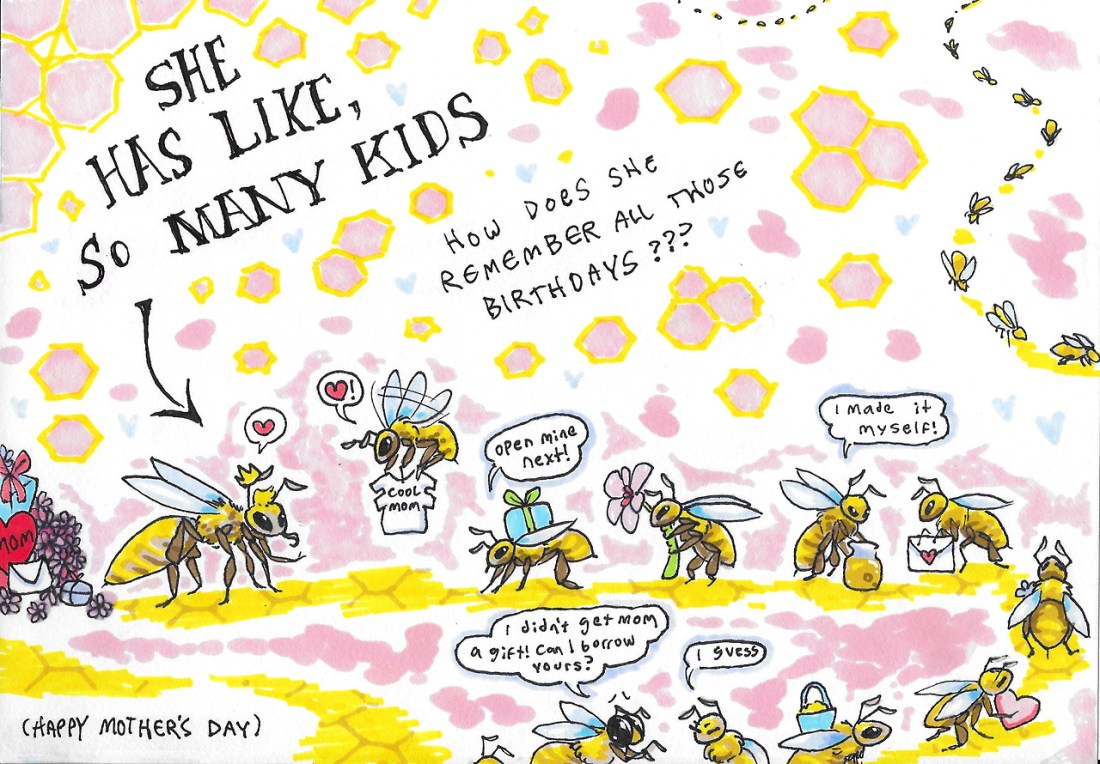 SHE
HAS LIKE,
SO MANY KIDS
HOW DOES SHE
REMEMBER ALL THOSE
BIRTHDAYS???
!
COOL
MOM
open mine
next!
I made it
myself!
MOM
I didn't get mom
a gift! Can I borrow
yours?
I guess
(HAPPY MOTHER'S DAY)